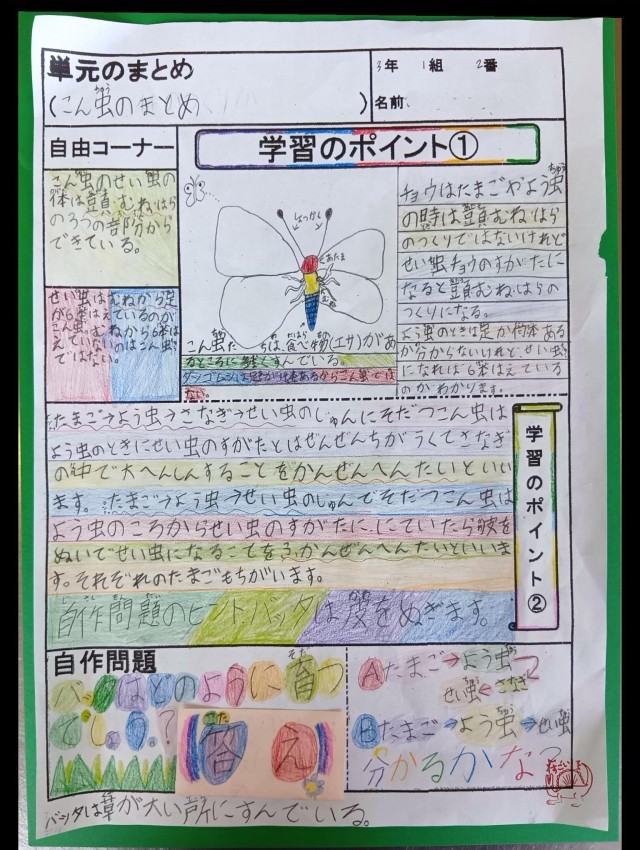 単元のまとめ
(こん虫のまとめ)
3年 1組 2番
名前
自由コーナー
こん虫のせい虫の
体は頭・むね・はら
の3つの部分から
できている。
せい虫は
足が6本はえているのが
こん虫。むね
ではない。
むねから足
から6本は
えていない
のはこん虫
学習のポイント①
しょっかく
あたま
むね
こん虫たちは、食べ物(エサ)があ
るところに
すんでいる。
ダンゴムシは足が
本あるからこん虫では
ない。
チョウはたまごやよう虫
の時は頭・むね・はら
のつくりではないけれど
せい虫チョウのすがたに
なると頭・むね・はらの
つくりになる。
よう虫のときは足が何本ある
か分からないけれど、せい虫
になれば6本はえている
のがわかります。
学習のポイント②
たまご→よう虫→さなぎ→せい虫のじゅんにそだつこん虫は
よう虫のときにせい虫のすがたとはぜんぜんちがうくてさなぎ
の中で大へんしんすることをかんぜんへんたいといい
ます。たまご→よう虫→せい虫のじゅんでそだつこん虫は
よう虫のころからせい虫のすがたに、にていたら皮を
ぬいでせい虫になることをふかんぜんへんたいといいま
す。それぞれのたまごもちがいます。
自作問題のヒント、バッタは皮をぬぎます。
自作問題
バッタはどのように育つ
でしょう。?
答え
Aたまご→よう虫
せい虫←さなぎ
Bたまご→よう虫→せい虫
分かるかな?
バッタは草が大い所にすんでいる。